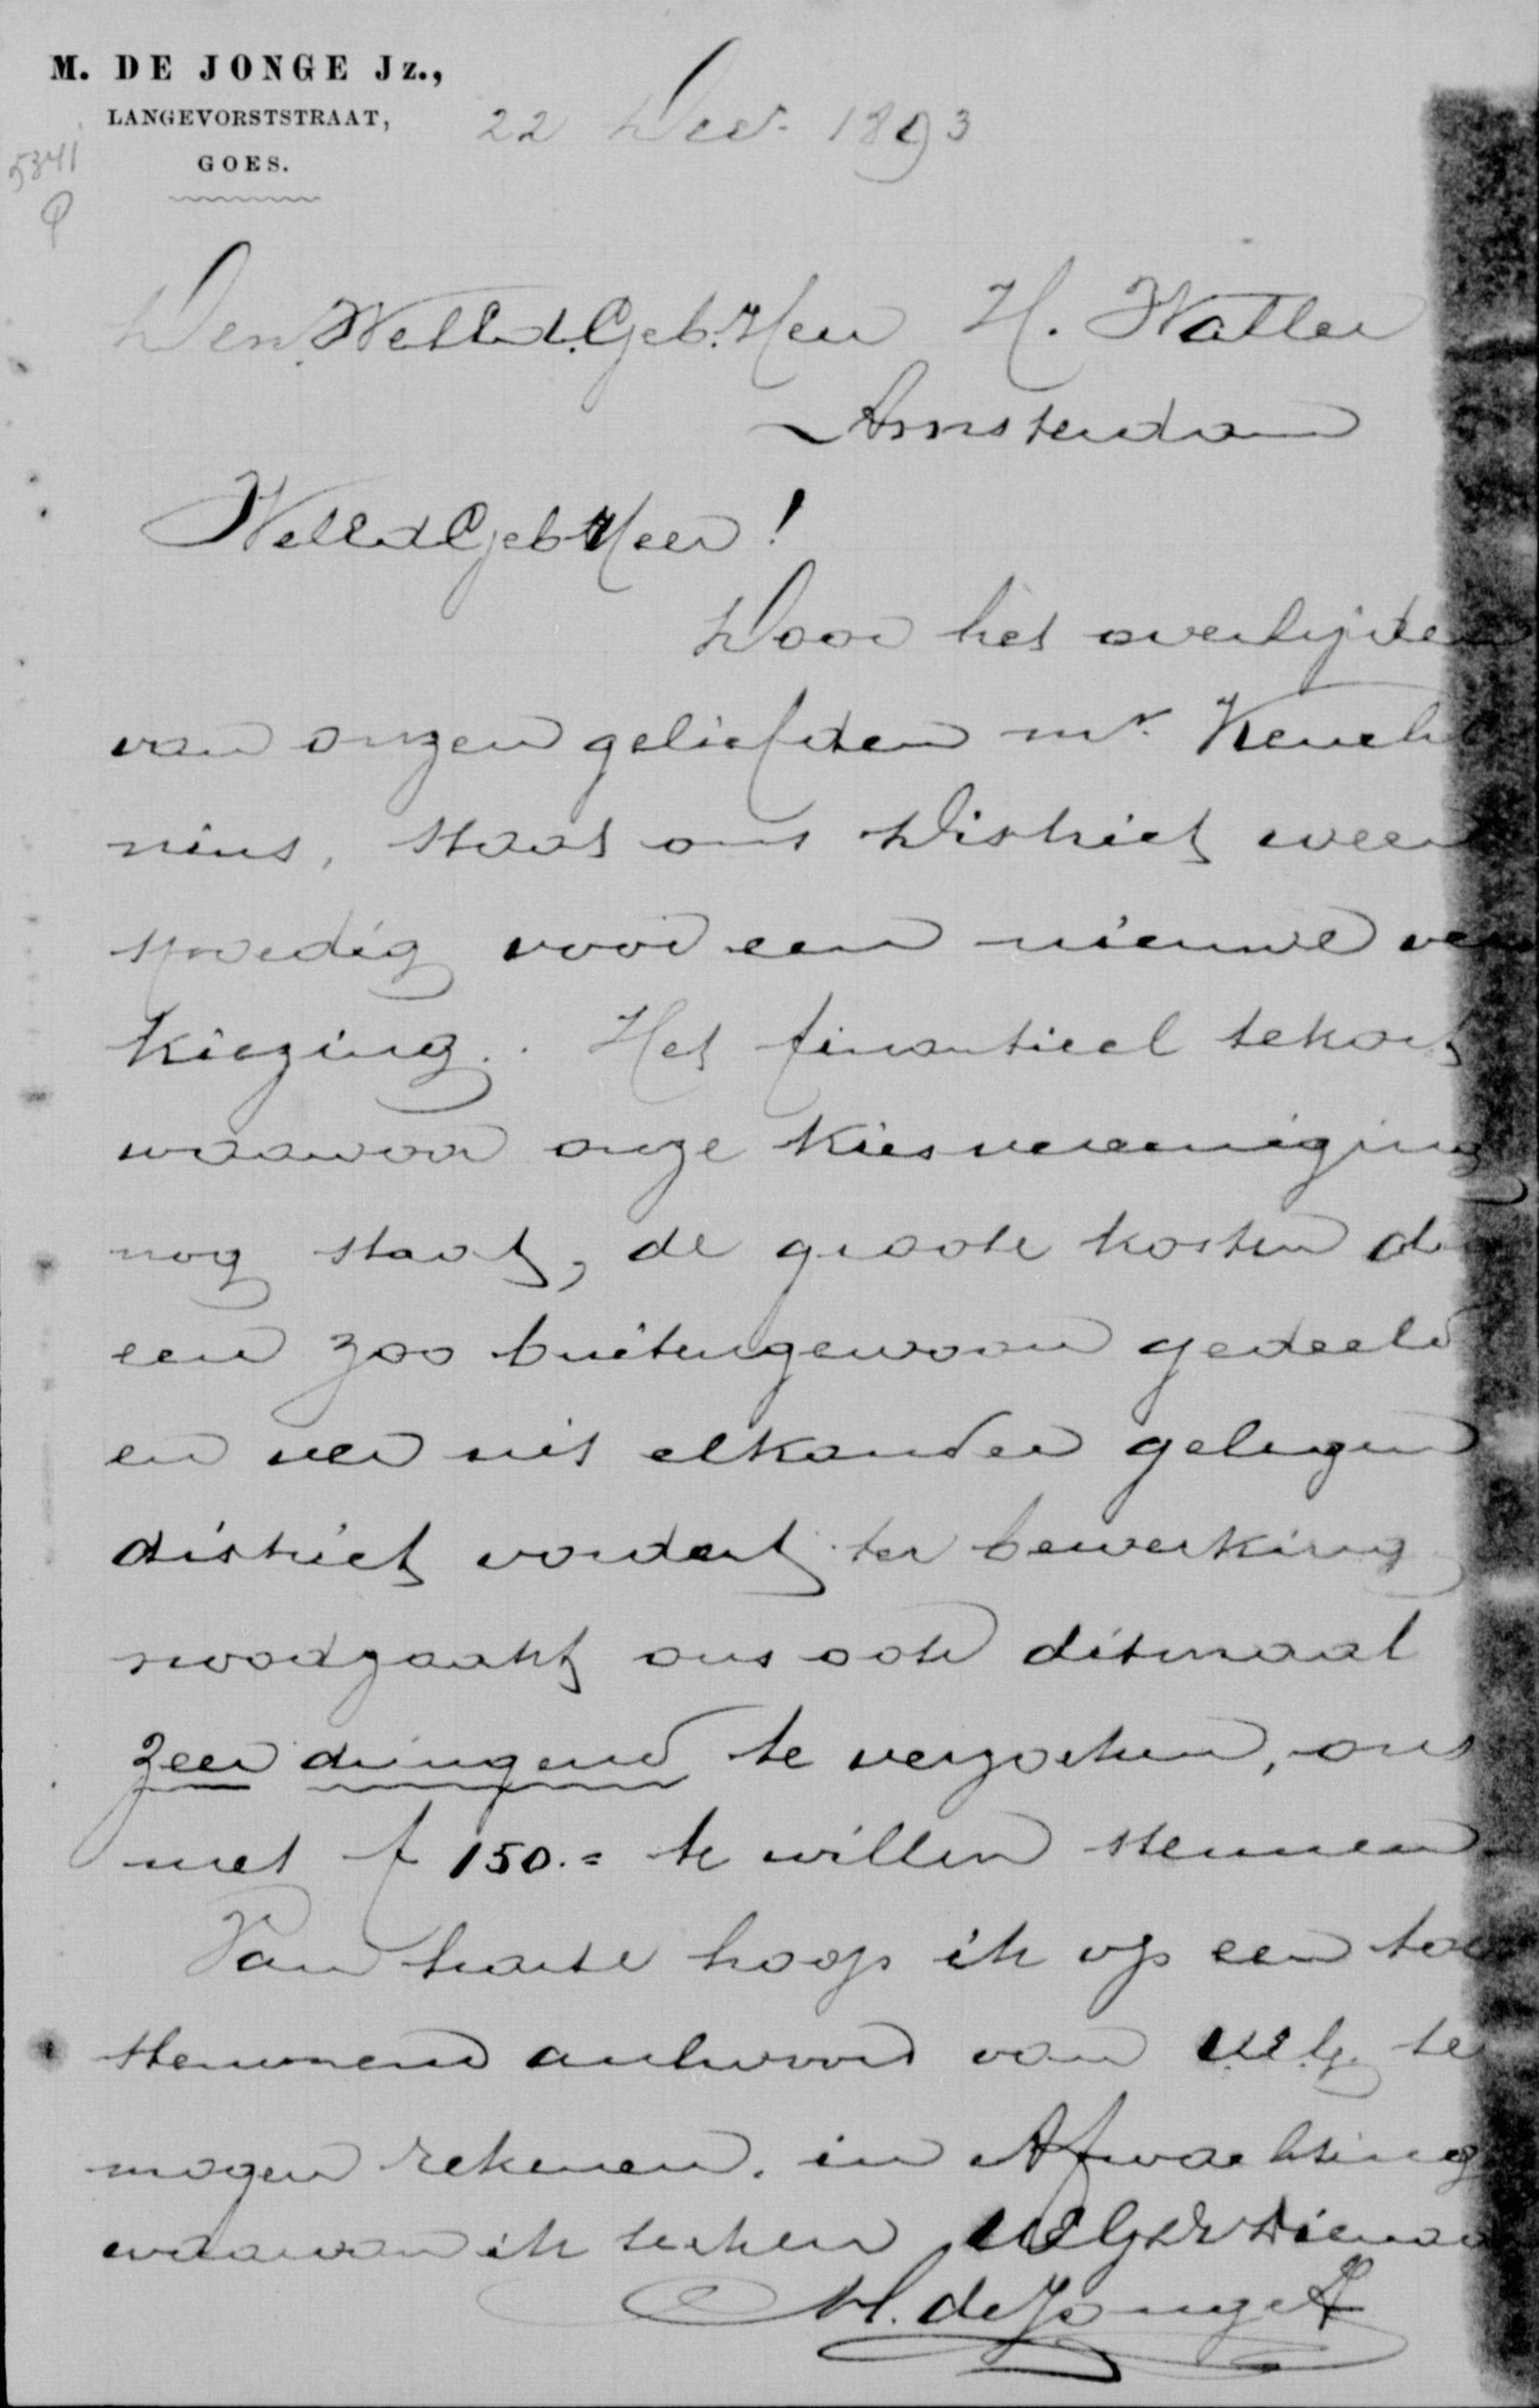 M. DE JONGE Jz.,
LANGEVORSTSTRAAT,
GOES.
22 Dec. 1893
5341
Den WelEd. Geb. Heer H. Waller
Amsterdam
WelEdGeb Heer!
Door het overlijden
van onzen geliefden mr. Keuch
nius, staat ons District weer
spoedig voor een nieuwe ver
kiezing. Het finantieel tekort
waarvoor onze Kiesvereeniging
nog staat, de groote kosten die
een zoo buitengewoon gedeeld
en ver uit elkander gelegen
district vordert ter bewerking
noodzaakt ons ook ditmaal
zeer dringend te verzoeken, ons
met f 150.= te willen steunen
Van harte hoop ik op een toe
stemmend antwoord van UEG. te
mogen rekenen. in Afwachting
waarvan ik teeken UEGDWDienaar
M. de Jonge Jz